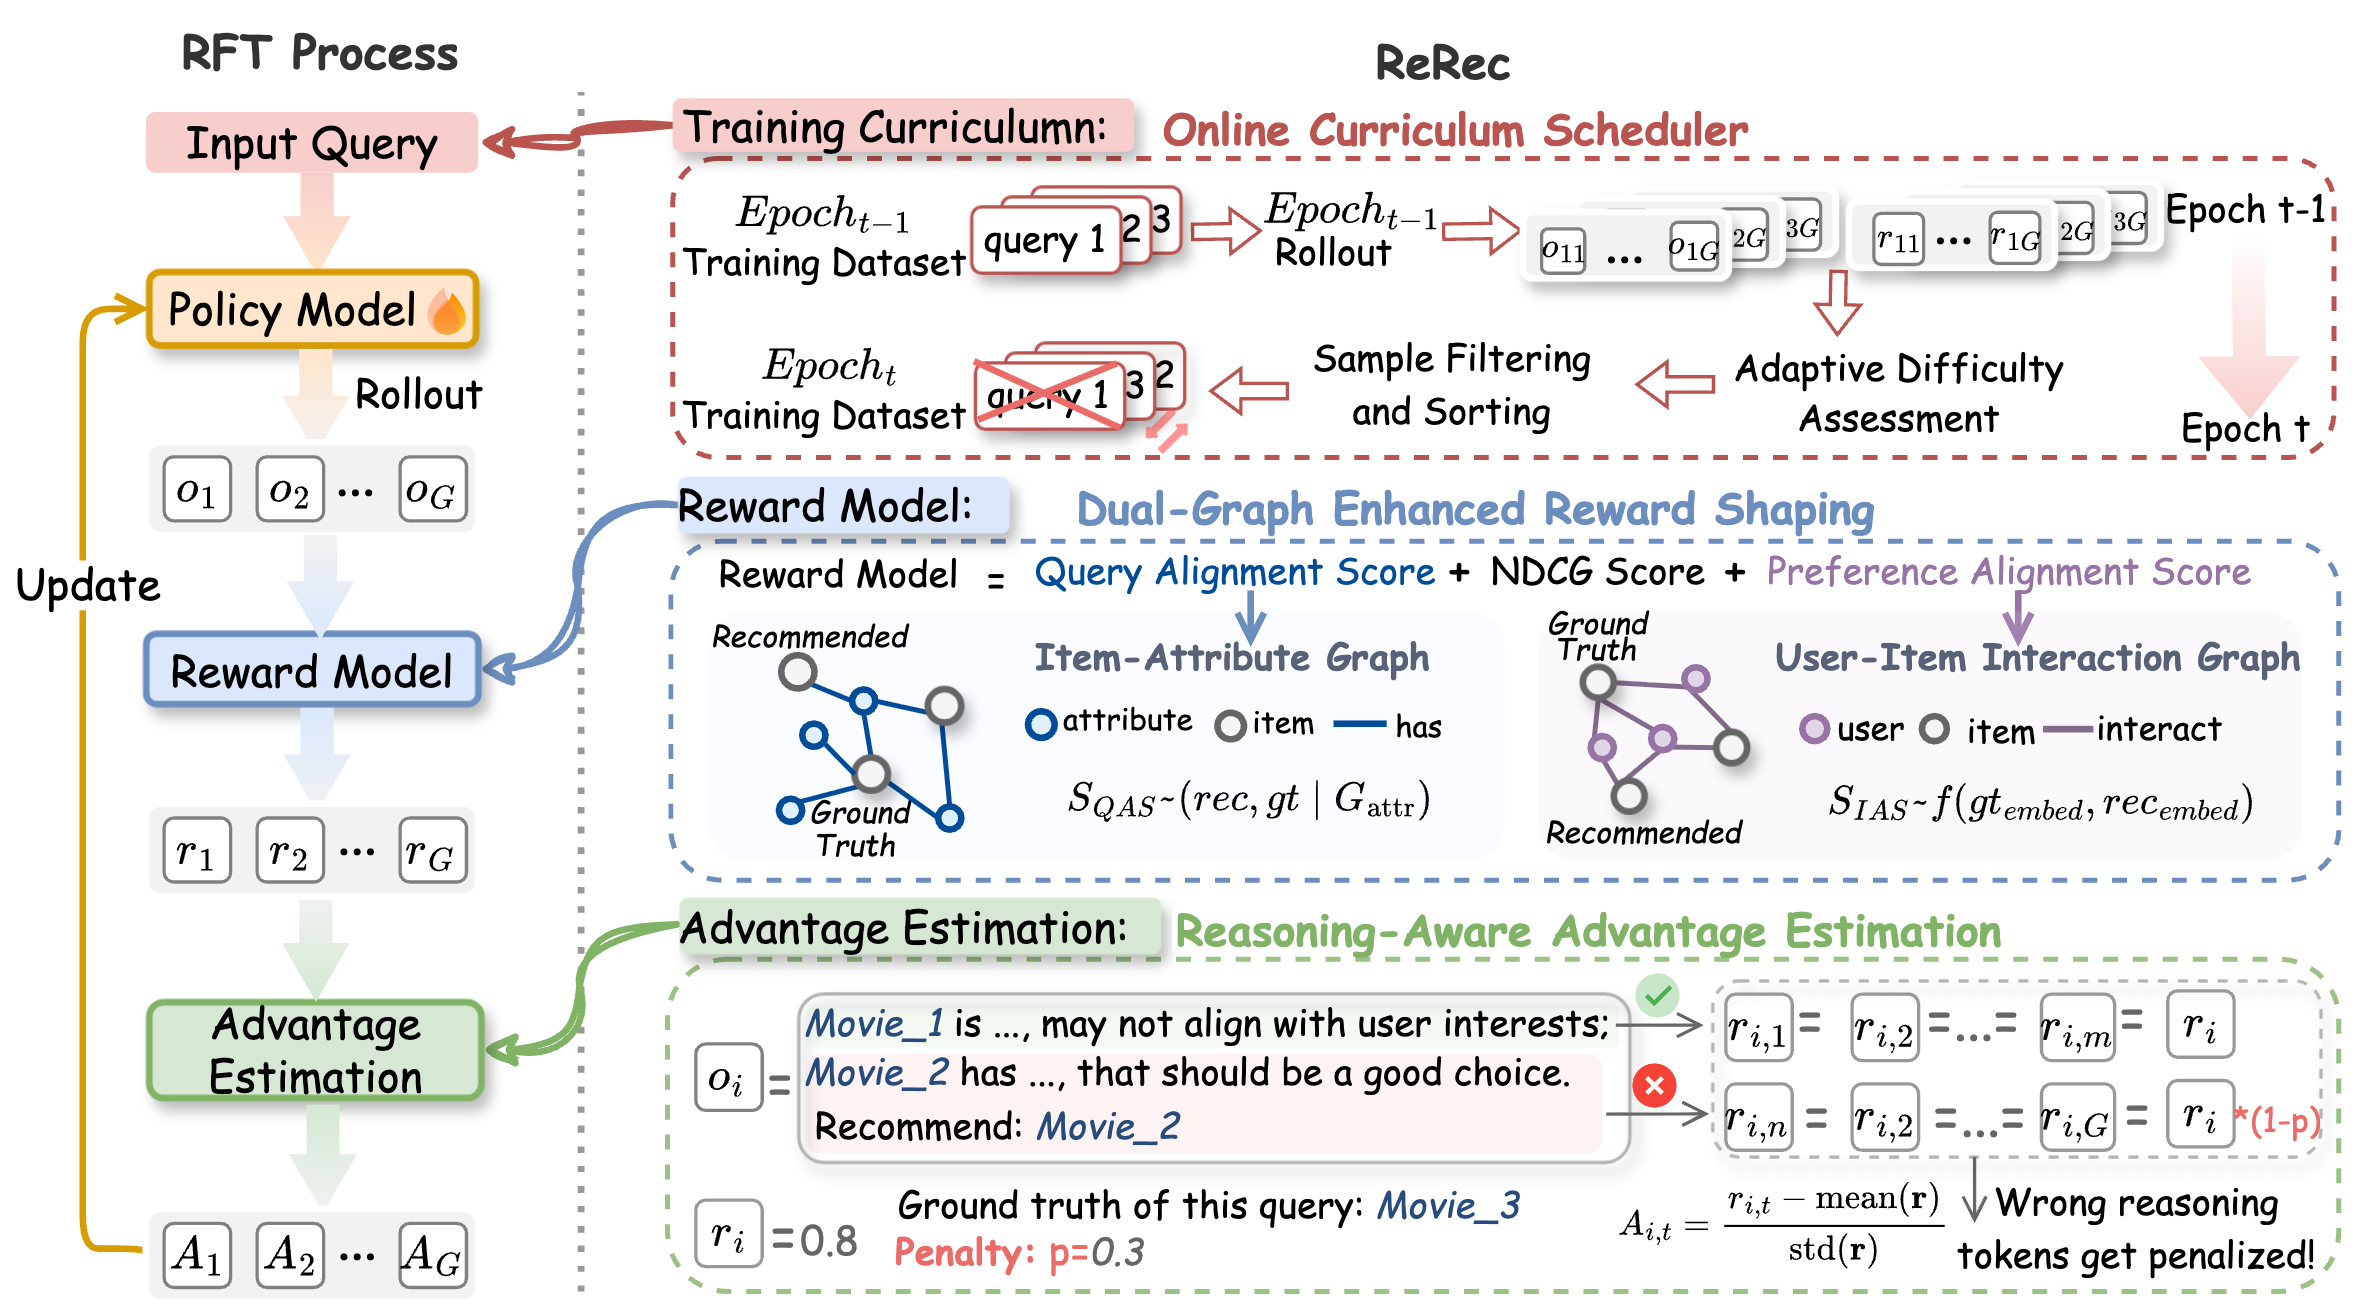 RFT Process
Input Query
Policy Model
Rollout
o_1 o_2 ... o_G
Update
Reward Model
r_1 r_2 ... r_G
Advantage
Estimation
A_1 A_2 ... A_G
ReRec
Training Curriculumn: Online Curriculum Scheduler
Epoch_{t-1}
Training Dataset
query 1 2 3
Epoch_{t-1}
Rollout
o_{11} ... o_{1G} 2G 3G
r_{11} ... r_{1G} 2G 3G
Epoch t-1
Epoch_t
Training Dataset
query 1 3 2
Sample Filtering
and Sorting
Adaptive Difficulty
Assessment
Epoch t
Reward Model: Dual-Graph Enhanced Reward Shaping
Reward Model = Query Alignment Score + NDCG Score + Preference Alignment Score
Recommended
Ground
Truth
Item-Attribute Graph
attribute item has
S_{QAS} ~ (rec, gt | G_{attr})
Ground
Truth
Recommended
User-Item Interaction Graph
user item interact
S_{IAS} ~ f(gt_{embed}, rec_{embed})
Advantage Estimation: Reasoning-Aware Advantage Estimation
o_i =
Movie_1 is ..., may not align with user interests;
Movie_2 has ..., that should be a good choice.
Recommend: Movie_2
r_{i,1} = r_{i,2} = ... = r_{i,m} = r_i
r_{i,n} = r_{i,2} = ... = r_{i,G} = r_i *(1-p)
r_i = 0.8
Ground truth of this query: Movie_3
Penalty: p=0.3
A_{i,t} = \frac{r_{i,t} - mean(r)}{std(r)}
Wrong reasoning
tokens get penalized!